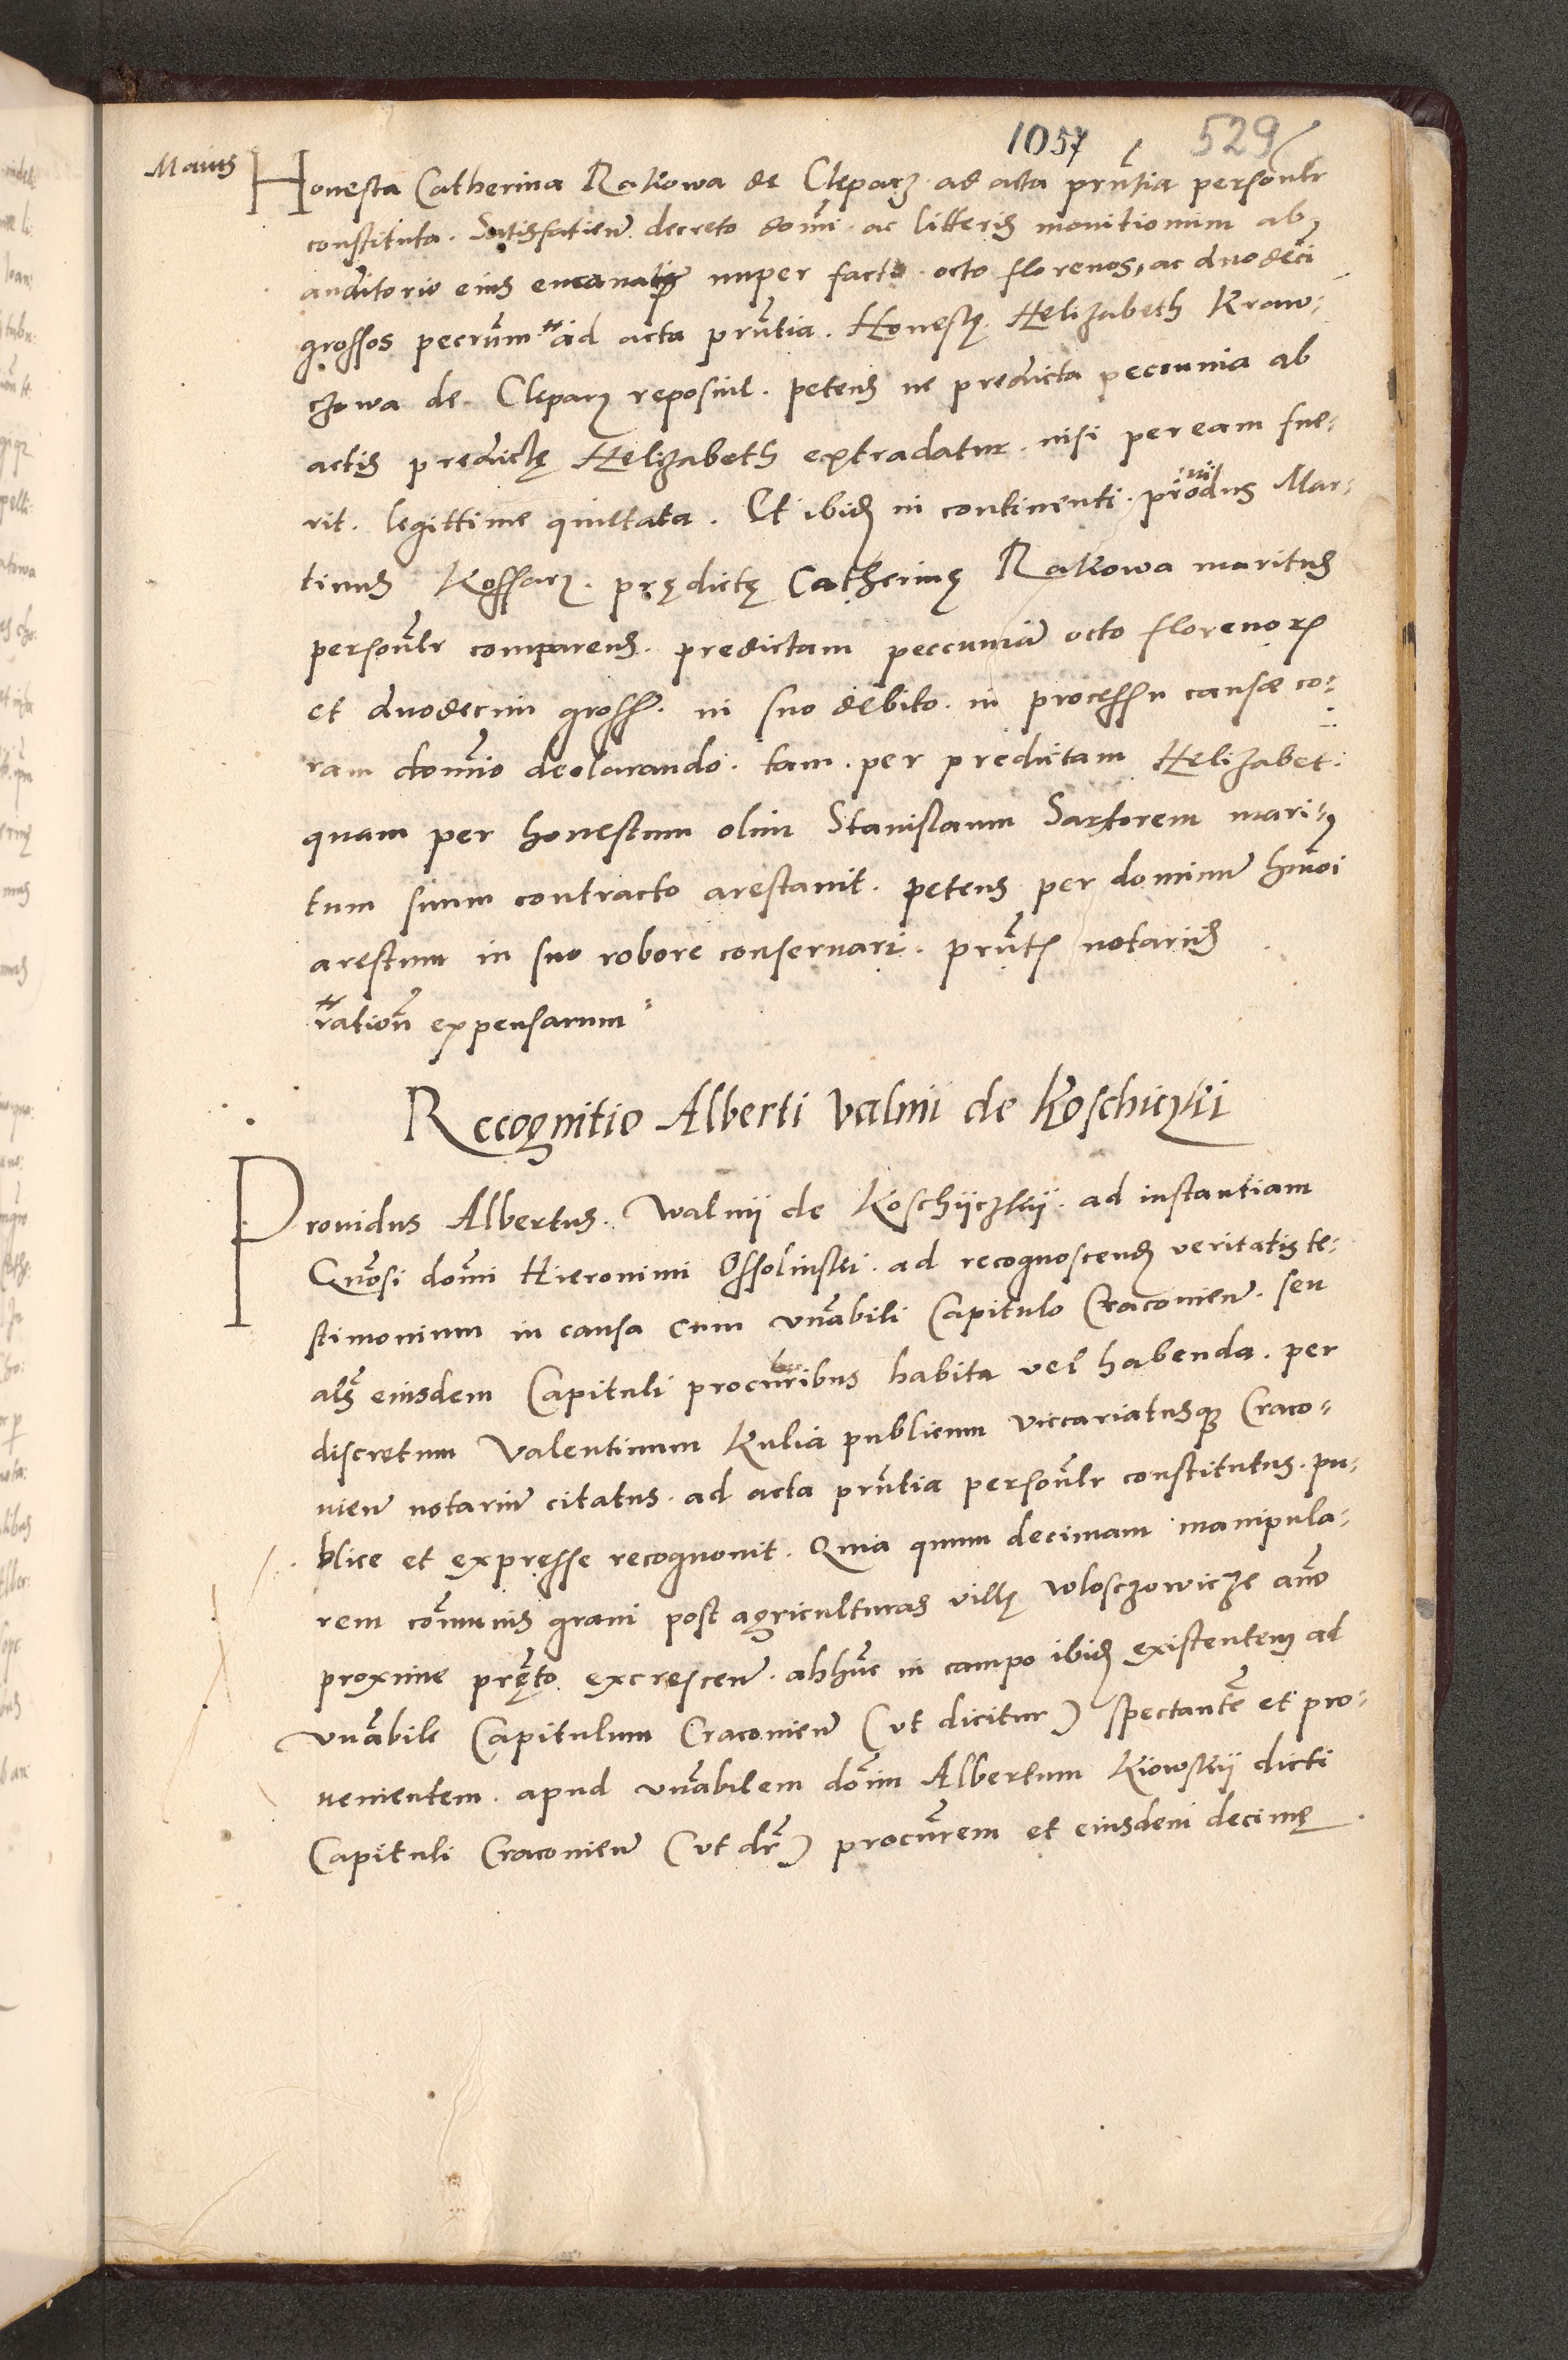 1057 529
Maius
Honesta Catherina Rakowa de Cleparz ad acta pr̃ntia personlr
constituta. Satisfatien̄ decreto dom̃i ac litteris monitionum ab
auditorio eius emanatis nuper facto octo florenos, ac duodeci
grossos pecc̄um # ad acta pr̃ntia. Honestę Helizabeth Kraw-
czowa de Cleparz reposuit. petens ne predicta peccunia ab
actis predictę Helizabeth extradatur nisi per eam fue-
rit legittime quittata. Et ibidẽ in continenti prouidus Mar-
tinus Kossarz. prędictę Catherinę Rakowa maritus
personlr comparens. predictam peccuniã octo florenorum
et duodecim gross. in suo debito in processu causæ co-
ram dom̃io declarando tam per predictam Helizabet
quam per honestum olim Stanislaum Sartorem mari-
tum suum contracto arestauit. petens per dominũ hm̃oi
arestum in suo robore conseruari. pr̃nte notariis
# ration̄ expensarum
Recognitio Alberti Valnii de Koschiczki
Prouidus Albertus. Walnij de Koschijczkij. ad instantiam
Gn̄osi dom̃i Hieronimi Ossolinski ad recognoscend̄ veritatis te-
stimonium in causa cum vn̄abili Capitulo Cracouien̄ seu
als eiusdem Capituli procurribus habita vel habenda. per
discretum Valentinum Kulia publicum viccariatusq̃ Craco-
uien̄ notariũ citatus. ad acta pr̃ntia personlr constitutus. pu-
blice et expresse recognouit. Quia quum decimam manipula-
rem com̃unis grani post agriculturas villę Wlosczowicze an̄o
proxime pręt̃o excrescen̄. abhuc̄ in campo ibidẽ existentem ad
vn̄abile Capitulum Cracouien̄ (ut dicitur) spectantẽ et pro-
uenientem. apud vn̄abilem dom̃ Albertum Kiowskij dicti
Capituli Cracouien̄ (ut dr̃) procur̃em et eiusdem decimę